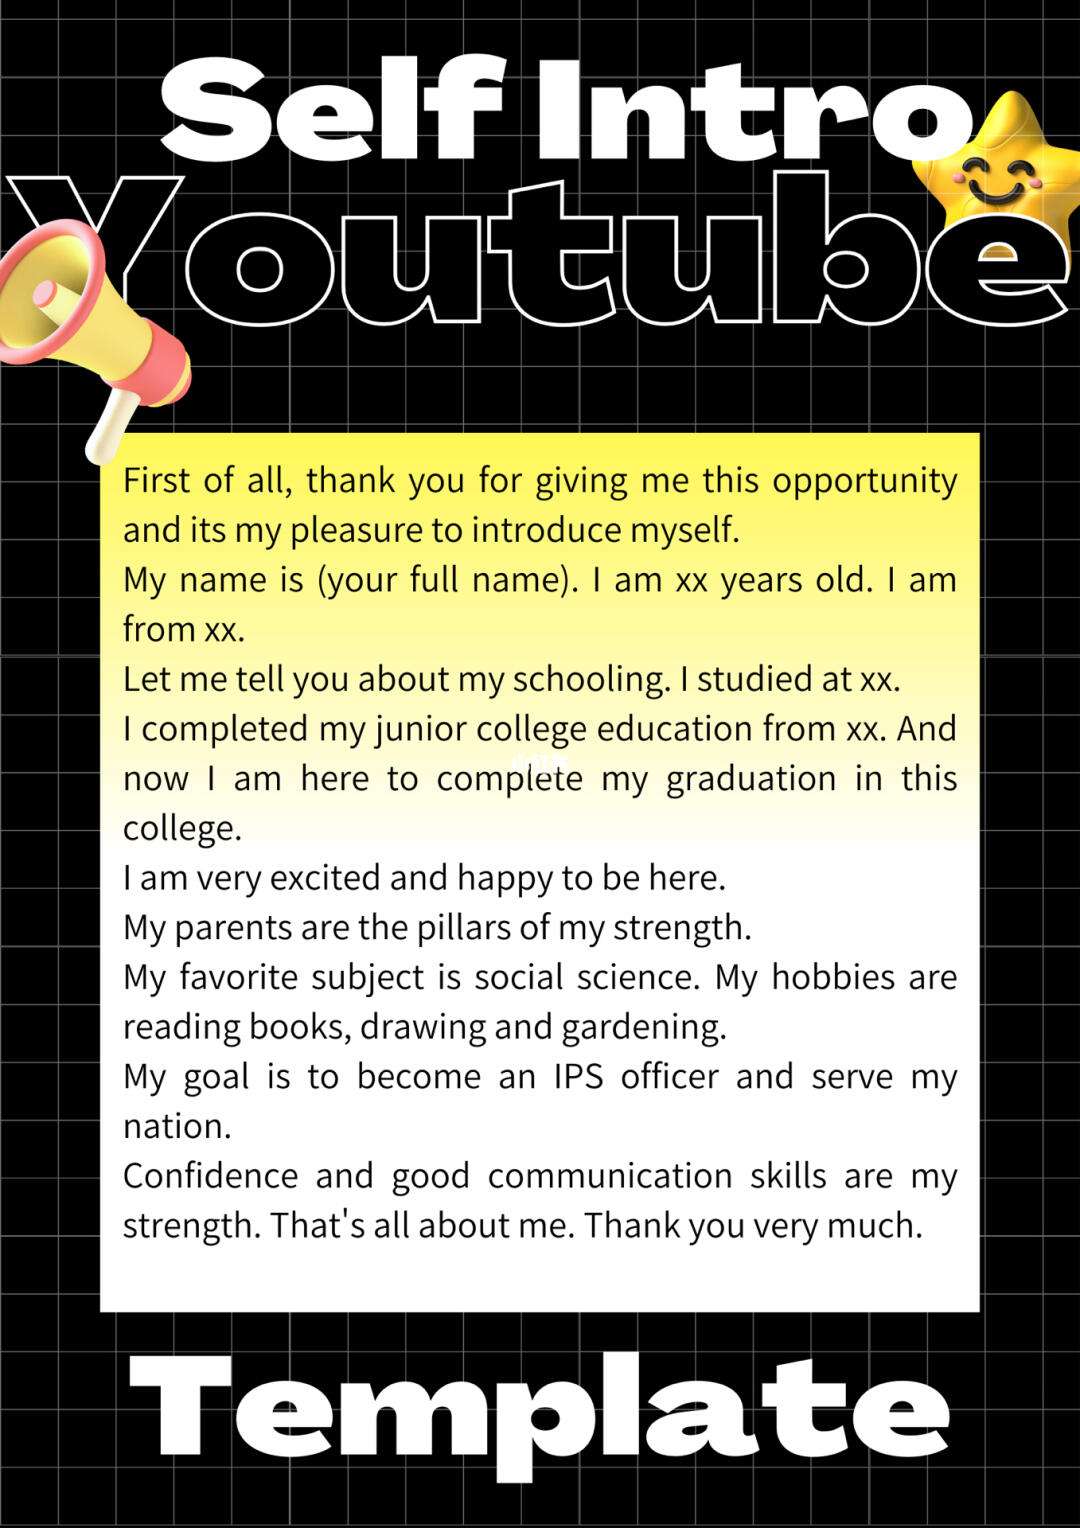 Self Intro
Youtube
First of all, thank you for giving me this opportunity
and its my pleasure to introduce myself.
My name is (your full name). I am xx years old. I am
from xx.
Let me tell you about my schooling. I studied at xx.
I completed my junior college education from xx. And
now I am here to complete my graduation in this
college.
I am very excited and happy to be here.
My parents are the pillars of my strength.
My favorite subject is social science. My hobbies are
reading books, drawing and gardening.
My goal is to become an IPS officer and serve my
nation.
Confidence and good communication skills are my
strength. That's all about me. Thank you very much.
Template